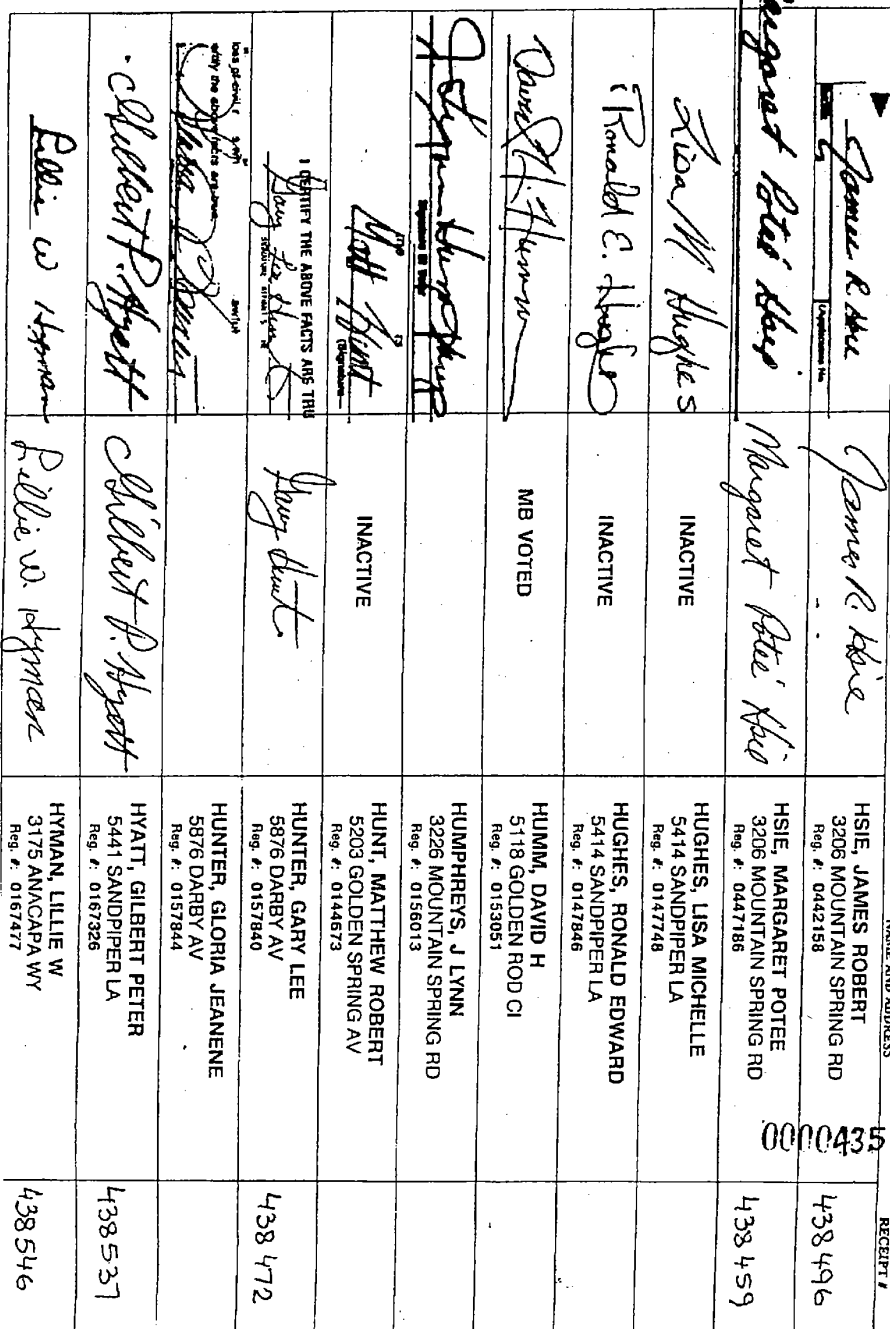 NAME AND ADDRESS
RECEIPT #
James R. Hsie
James R. Hsie
HSIE, JAMES ROBERT
3206 MOUNTAIN SPRING RD
Reg. #: 0442158
438496
0000435
Margaret Poteé Hsie
Margaret Poteé Hsie
HSIE, MARGARET POTEE
3206 MOUNTAIN SPRING RD
Reg. #: 0447186
438459
Lisa M Hughes
INACTIVE
HUGHES, LISA MICHELLE
5414 SANDPIPER LA
Reg. #: 0147748
Ronald E. Hughes
INACTIVE
HUGHES, RONALD EDWARD
5414 SANDPIPER LA
Reg. #: 0147846
David H. Humm
MB VOTED
HUMM, DAVID H
5118 GOLDEN ROD CI
Reg. #: 0153051
J Lynn Humphreys
HUMPHREYS, J LYNN
3226 MOUNTAIN SPRING RD
Reg. #: 0156013
Matt Hunt
(Signature
INACTIVE
HUNT, MATTHEW ROBERT
5203 GOLDEN SPRING AV
Reg. #: 0144673
I CERTIFY THE ABOVE FACTS ARE TRU
Gary Lee Hunter
Gary Hunter
HUNTER, GARY LEE
5876 DARBY AV
Reg. #: 0157840
438472
HUNTER, GLORIA JEANENE
5876 DARBY AV
Reg. #: 0157844
Gilbert P. Hyatt
Gilbert P. Hyatt
HYATT, GILBERT PETER
5441 SANDPIPER LA
Reg. #: 0167326
438537
Lillie W Hyman
Lillie W. Hyman
HYMAN, LILLIE W
3175 ANACAPA WY
Reg. #: 0167477
438546